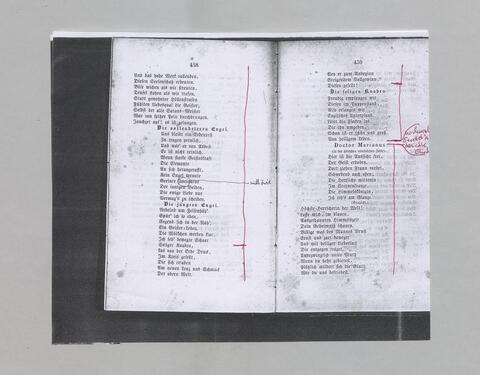 458
Und das hohe Werk vollenden.
Diesen Seelenschatz erbeuten.
Böse wichen als wir streuten,
Teufel flohen als wir trafen.
Statt gewohnter Höllenstrafen
Fühlten Liebesqual die Geister;
Selbst der alte Satans-Meister
War von spitzer Pein durchdrungen.
Jauchzet auf! es ist gelungen.
Die vollendeteren Engel.
Uns bleibt ein Erdenrest
Zu tragen peinlich,
Und wär' er von Asbest
Er ist nicht reinlich.
Wenn starke Geisteskraft
Die Elemente
An sich herangerafft,
Kein Engel trennte
Geeinte Zwienatur
Der innigen Beiden,
Die ewige Liebe nur
Vermag's zu scheiden.
Die jüngern Engel.
Nebelnd um Felsenhöh'
Spür' ich so eben,
Regend sich in der Näh',
Ein Geister-Leben.
Die Wölkchen werden klar,
Ich seh' bewegte Schaar
Seliger Knaben,
Los von der Erde Druck,
Im Kreis gesellt,
Die sich erlaben
Am neuen Lenz und Schmuck
Der obern Welt.
459
Sey er zum Anbeginn
Steigendem Vollgewinn
Diesen gesellt!
Die seligen Knaben.
Freudig empfangen wir
Diesen im Puppenstand
Also erlangen wir
Englisches Unterpfand.
Löset die Flocken los
Die ihn umgeben,
Schon ist er schön und groß
Von heiligem Leben.
Doctor Marianus
Hier ist die Aussicht frei,
Der Geist erhoben.
Dort ziehen Fraun vorbei,
Schwebend nach oben;
Die Herrliche mitteninn
Im Sternenkranze,
Die Himmelskönigin,
Ich seh's am Glanze.
Höchste Herrscherin der Welt!
Lasse mich, im blauen,
Ausgespannten Himmelszelt
Dein Geheimniß schauen.
Billige was des Mannes Brust
Ernst und zart beweget
Und mit heiliger Liebeslust
Dir entgegen träget.
Unbezwinglich unser Muth
Wenn du hehr gebietest,
Plötzlich mildert sich die Gluth
Wie du uns befriedest.